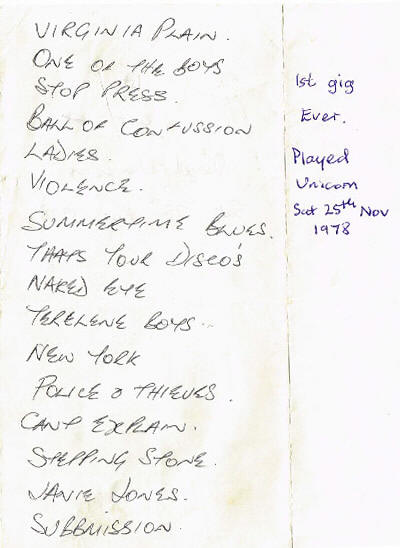 VIRGINIA PLAIN.
ONE OF THE BOYS
STOP PRESS.
BALL OF CONFUSSION
LADIES.
VIOLENCE.
SUMMERTIME BLUES.
THATS YOUR DISCO'S
NAKED EYE
TERELENE BOYS..
NEW YORK
POLICE & THIEVES.
CANT EXPLAIN.
STEPPING STONE.
JANIE JONES.
SUBBMISSION.
1st gig
Ever.
Played
Unicorn
Sat 25th Nov
1978